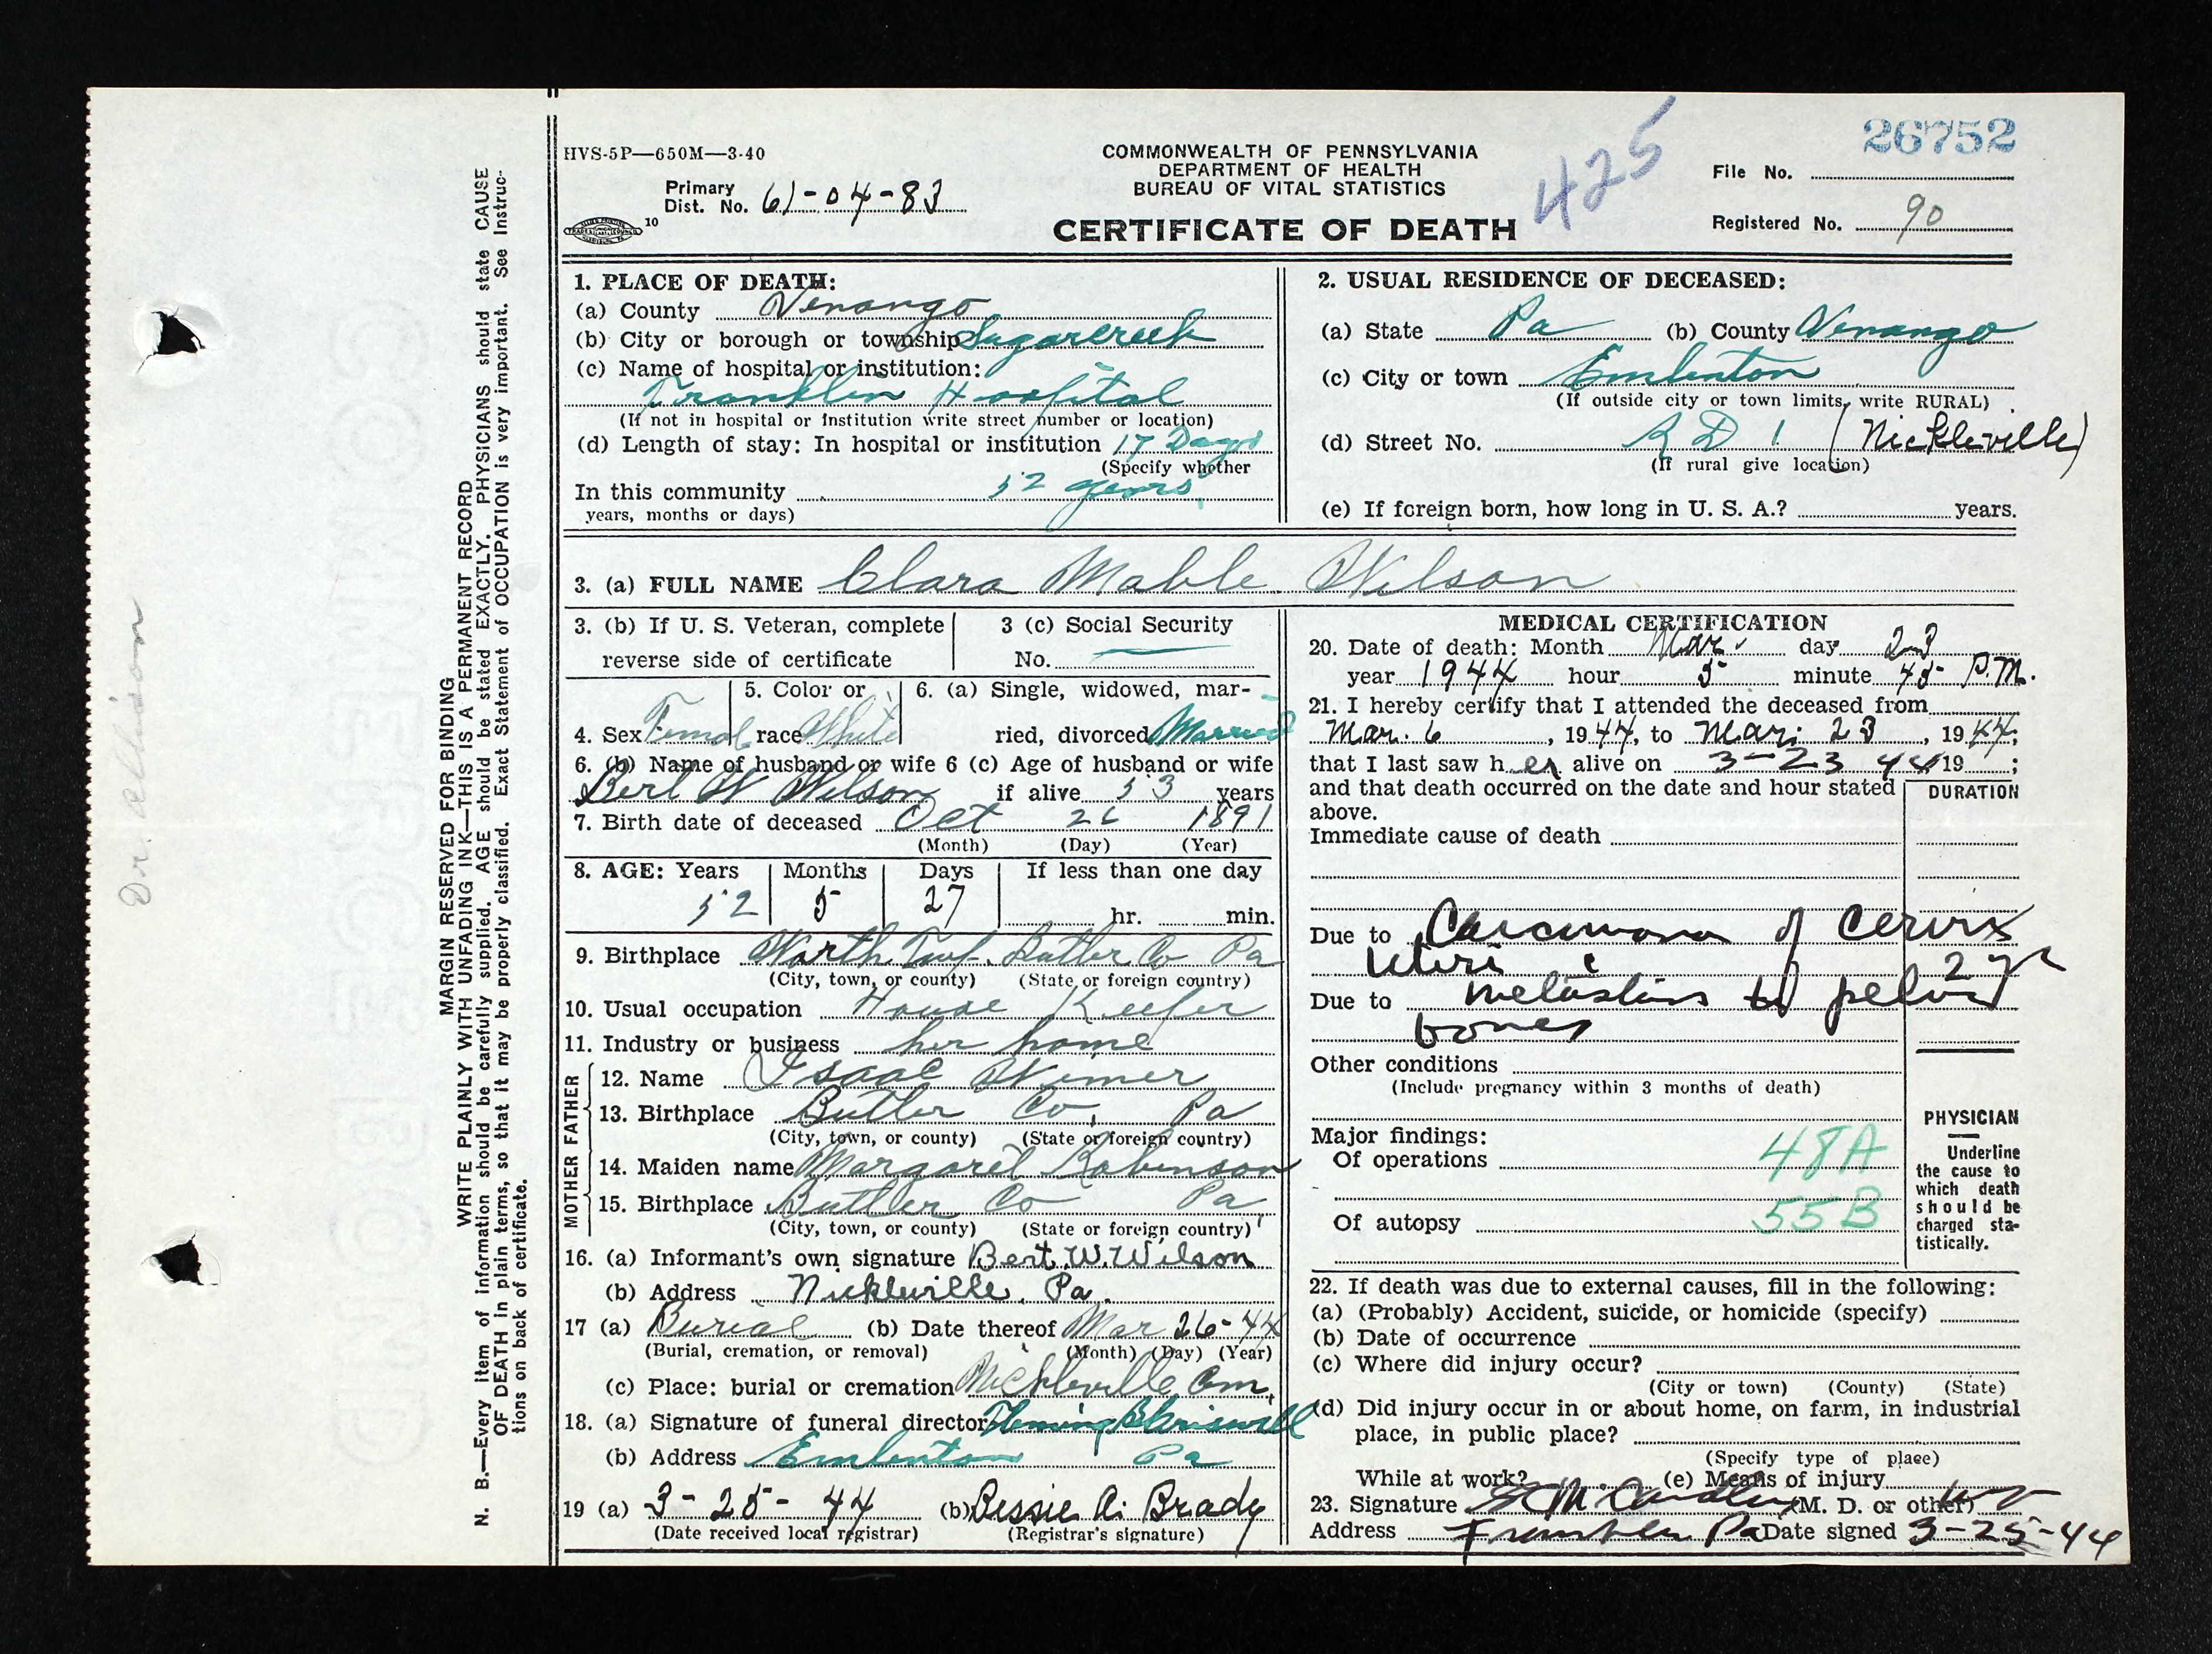 26752
HVS-5P—650M—3-40
COMMONWEALTH OF PENNSYLVANIA
DEPARTMENT OF HEALTH
BUREAU OF VITAL STATISTICS
425
File No.
Primary
Dist. No. 61-04-83
10
CERTIFICATE OF DEATH
Registered No. 90
1. PLACE OF DEATH:
(a) County Venango
(b) City or borough or township Sugarcreek
(c) Name of hospital or institution:
Franklin Hospital
(If not in hospital or institution write street number or location)
(d) Length of stay: In hospital or institution 17 Days
(Specify whether
In this community 52 years
years, months or days)
2. USUAL RESIDENCE OF DECEASED:
(a) State Pa (b) County Venango
(c) City or town Emlenton
(If outside city or town limits, write RURAL)
(d) Street No. R D 1 (Nickleville)
(If rural give location)
(e) If foreign born, how long in U. S. A.? years.
3. (a) FULL NAME Clara Mable Wilson
3. (b) If U. S. Veteran, complete
reverse side of certificate
3 (c) Social Security
No.
4. Sex Femal
5. Color or
race White
6. (a) Single, widowed, mar-
ried, divorced Married
6. (b) Name of husband or wife 6 (c) Age of husband or wife
Bert W Wilson if alive 53 years
7. Birth date of deceased Oct 26 1891
(Month) (Day) (Year)
8. AGE: Years Months Days If less than one day
52 5 27 hr. min.
9. Birthplace Worth Twp. Butler Co Pa
(City, town, or county) (State or foreign country)
10. Usual occupation House Keefer
11. Industry or business her home
FATHER
12. Name Isaac Wimer
13. Birthplace Butler Co, Pa
(City, town, or county) (State or foreign country)
MOTHER
14. Maiden name Margaret Robinson
15. Birthplace Butler Co Pa
(City, town, or county) (State or foreign country)
16. (a) Informant's own signature Bert W. Wilson
(b) Address Nickleville, Pa.
17 (a) Burial (b) Date thereof Mar 26-44
(Burial, cremation, or removal) (Month) (Day) (Year)
(c) Place: burial or cremation Nickleville Cem.
18. (a) Signature of funeral director Fleming
(b) Address Emlenton Pa
19 (a) 3-25-44 (b) Bessie A. Brady
(Date received local registrar) (Registrar's signature)
MEDICAL CERTIFICATION
20. Date of death: Month Mar. day 23
year 1944 hour 5 minute 45 P.M.
21. I hereby certify that I attended the deceased from
Mar. 6, 1944, to Mar. 23, 1944;
that I last saw her alive on 3-23 44 19 ;
and that death occurred on the date and hour stated
above.
DURATION
Immediate cause of death
Due to Carcinoma of Cervix
Uteri c 2 yr
Due to metastasis to pelvis
bones
Other conditions
(Include pregnancy within 3 months of death)
Major findings:
Of operations 48A
Of autopsy 55B
PHYSICIAN
Underline
the cause to
which death
should be
charged sta-
tistically.
22. If death was due to external causes, fill in the following:
(a) (Probably) Accident, suicide, or homicide (specify)
(b) Date of occurrence
(c) Where did injury occur?
(City or town) (County) (State)
(d) Did injury occur in or about home, on farm, in industrial
place, in public place?
(Specify type of place)
While at work? (e) Means of injury
23. Signature (M. D. or other)
Address Franklin Pa Date signed 3-25-44
MARGIN RESERVED FOR BINDING
WRITE PLAINLY WITH UNFADING INK—THIS IS A PERMANENT RECORD
N. B.—Every item of information should be carefully supplied. AGE should be stated EXACTLY. PHYSICIANS should state CAUSE
OF DEATH in plain terms, so that it may be properly classified. Exact Statement of OCCUPATION is very important. See Instruc-
tions on back of certificate.